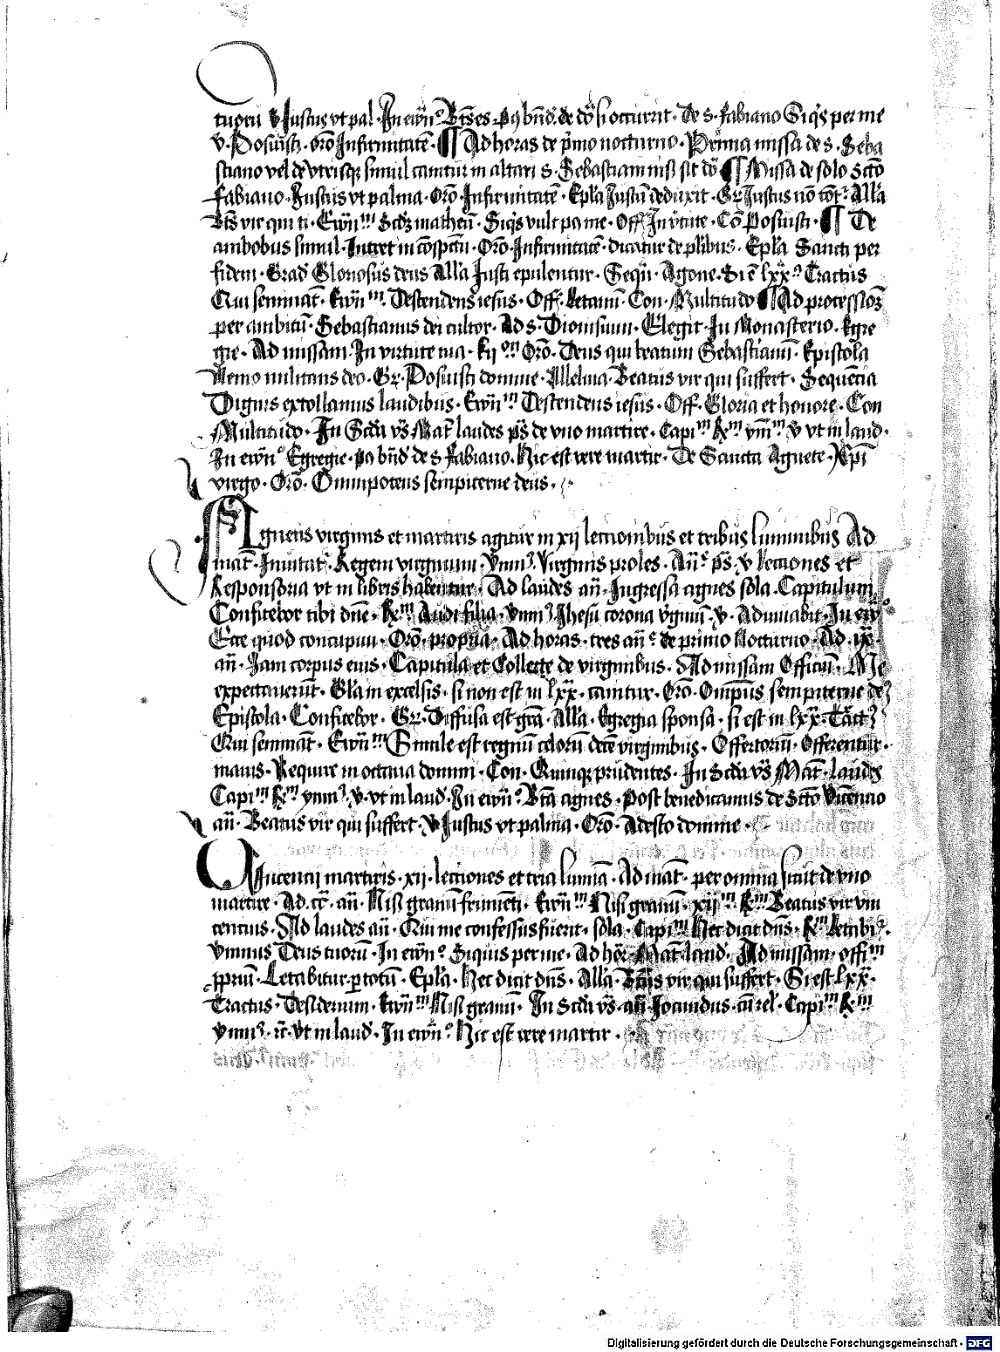 tuorū v Justus vt pal · In ewn̄° Btūs es · p9 bn̄d de dō si occurrit · De s · Fabiano Siq's per me
v · Posuisti · orō Infirmitatē · ¶ Ad horas de p'mo nocturno · Prima missa de s · Seba
stiano vel de vtrisq3 simul cantur in altari s · Sebastiani nisi sit dō ¶ Missa de solo scto
Fabiano · Justus vt palma · Orō · Infirmitatē · Epl̄a Justū deduxit · Gr Justus nō cōt · Allā
Bt̄s vir qui ti · Ewn̄m · Scdm matheū · Siq's vult pa me · Off · In v'tute · Cō Posuisti · ¶ De
ambobus simul · Intret in cōspectu · Orō · Infirmitatē · dicatur de plibus · Epl̄a Sancti per
fidem · Grad · Gloriosus deus Allā Justi epulentur · Sequn̄ · Agone · Si ē lxx° Tractus
Qui seminat̄ · Ewn̄m · Descendens iesus · Off · Letamī · Con · Multitudo ¶ Ad processiōʒ
per ambitū · Sebastianus dei cultor · Ad s · Dionisium · Elegit · In Monasterio · Egre
gie · Ad missam · In virtute tua · Kyon Orō · Deus qui beatum Sebastianū · Epistola
Nemo militans deo · Gr · Posuisti domine · Alleluia · Beatus vir qui suffert · Sequēcia
Dignis extollamus laudibus · Ewn̄m Descendens iesus · Off · Gloria et honore · Con
Multitudo · In Scdis vs̄ Mat̄ laudes ps̄ de vno martire · Capim Rm ym̄m · v vt in laud ·
In ewn̄° Egregie · p9 bn̄d de s · Fabiano · Hic est vere martir · De Sancta Agnete · Xp̄i
virgo · Orō · Omnipotens sempiterne deus ·
Agnetis virginis et martiris agitur in xij lectionibus et tribus luminibus Ad
mat̄ · Inuitat̄ · Regem virginum · Ymn9 · Virginis proles · An̄e ps̄ · v lectiones et
Responsoria vt in libris habentur · Ad laudes an̄ · Ingressa agnes sola · Capitulum
Confitebor tibi dn̄e · Rm Audi filia · Ymn9 Jhesu corona v'ginū · v · Adiuuabit · In ew̄
Ecce quod concupiui · Orō · propria · Ad horas · tres an̄e de primo Nocturno · Ad · ix
an̄ · Iam corpus eius · Capitula et Collecte de virginibus · Ad missam Officiū · Me
expectauerūt · Gl̄a in excelsis · si non est in lxx · cantur · Orō · Omp̄ns sempiterne de9
Epistola · Confitebor · Gr · Diffusa est gr̄a · Allā · Egregia sponsa · si est in lxx · Tract9
Qui seminat̄ · Ewn̄m Simile est regnū celorū decē virginibus · Offertoriū · Offerentur ·
maius · Require in octaua domini · Con · Quinq3 prudentes · In Scdis vs̄ Mat̄ · laudes
Capim Rm ymn9 · v · vt in laud · In ewn̄° Bt̄a agnes · Post benedicamus de Scto Vicencio
an̄ · Beatus vir qui suffert · v Justus vt palma · Orō · Adesto domine ·
Vincencij martiris · xij · lectiones et tria lumīa · Ad mat̄ · per omnia sicut de vno
martire · Ad · cr̄ · an̄ · Nisi granū frumēti · Ewn̄m Nisi granū · xijm · Rm Beatus vir vin
cencius · Ad laudes an̄ · Qui me confessus fuerit · sola · Capim Hec dicit dn̄s · Rm Letabit̄ ·
Ymnus Deus tuorū · In ewn̄° Siquis per me · Ad hōr Mat̄ laud · Ad missam offim
ppriū · Letabitur p totū · Epl̄a · Hec dicit dn̄s · Allā · Bt̄us vir qui suffert · Si est lxx ·
Tractus · Desiderium · Ewn̄m Nisi granū · In Scdis vs̄ · an̄ Jocundus · cū rel · Capim Rm
ymn9 · rc̄ · vt in laud · In ewn̄° Hic est vere martir ·
Digitalisierung gefördert durch die Deutsche Forschungsgemeinschaft - DFG